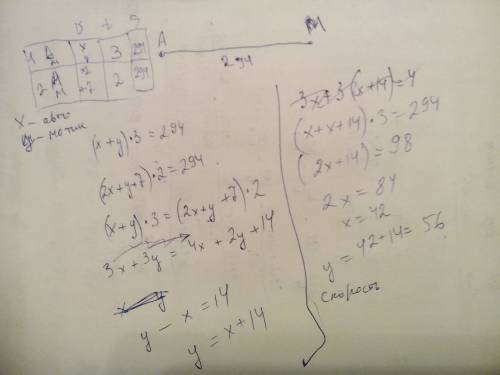 v t S
1 А м x y 3 294
2 А м 2x y+7 2 294
А М
294
x - авто
y - мотик
(x+y)·3=294
(2x+y+7)·2=294
(x+y)·3=(2x+y+7)·2
3x+3y=4x+2y+14
y-x=14
y=x+14
3x+3(x+14)=4
(x+x+14)·3=294
(2x+14)=98
2x=84
x=42
y=42+14=56
скорость